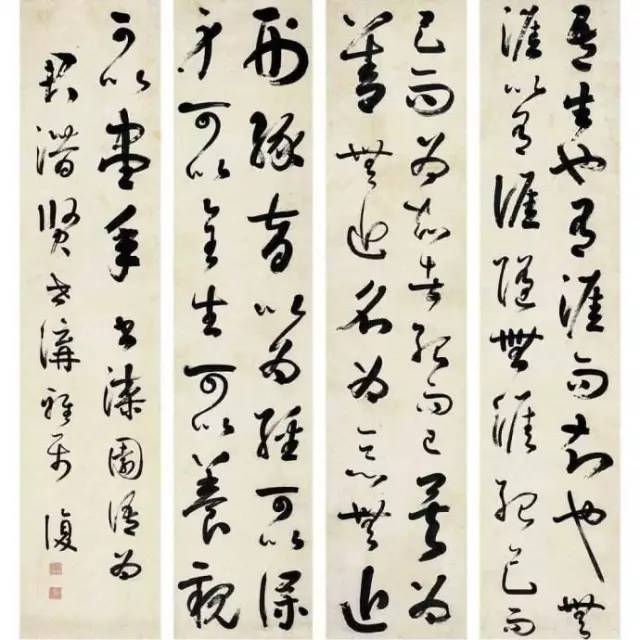 吾生也有涯而知也無
涯以有涯隨無涯殆已而
已而為知者殆而已矣為
善無近名為惡無近
刑緣督以為經可以保
身可以全生可以養親
可以盡年書漆園語為
潛賢世講雅屬復